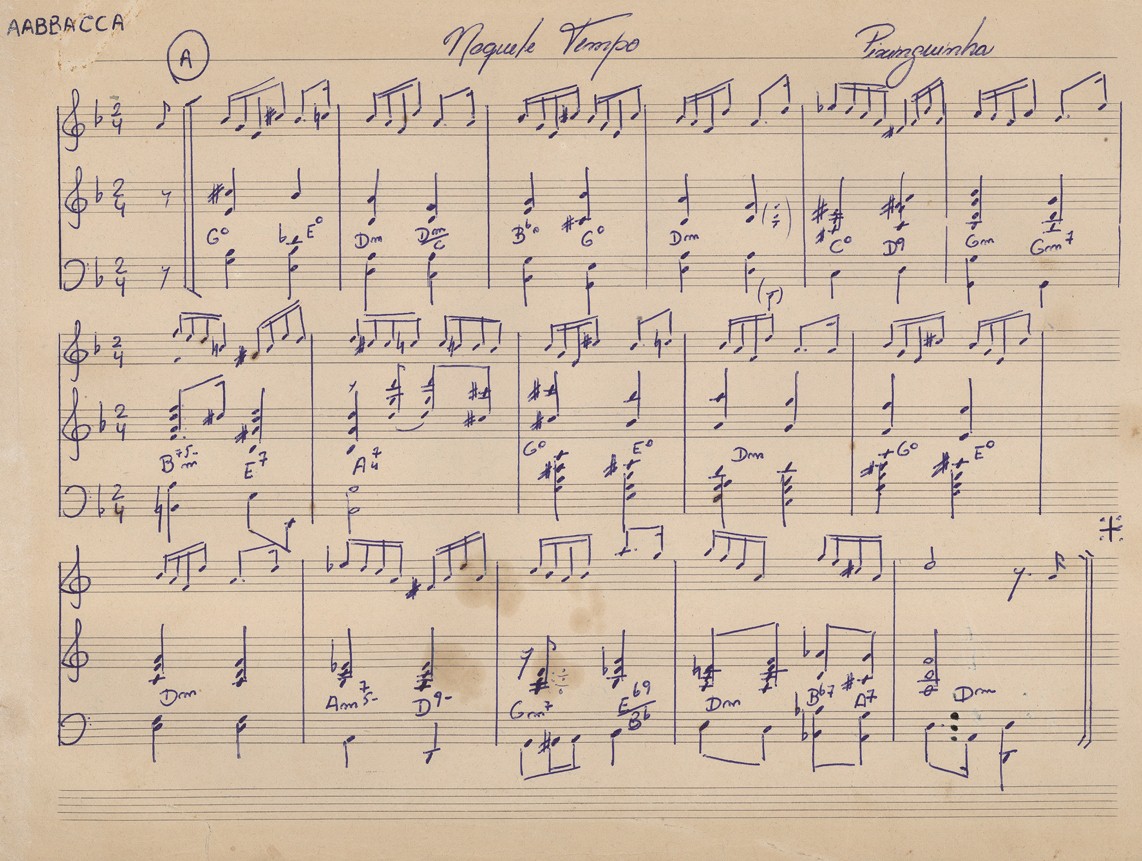 AABBACCA
A Naquele Tempo Pixinguinha
2 4
2 4
G° E° Dm Dm/C Bb° G° Dm C° D9 Gm Gm7
2 4
2 4
2 4
B75-m E7 A74 G° E° Dm G° E°
2 4
Dm Am75- D9- Gm7 E69/Bb Dm Bb7 A7 Dm